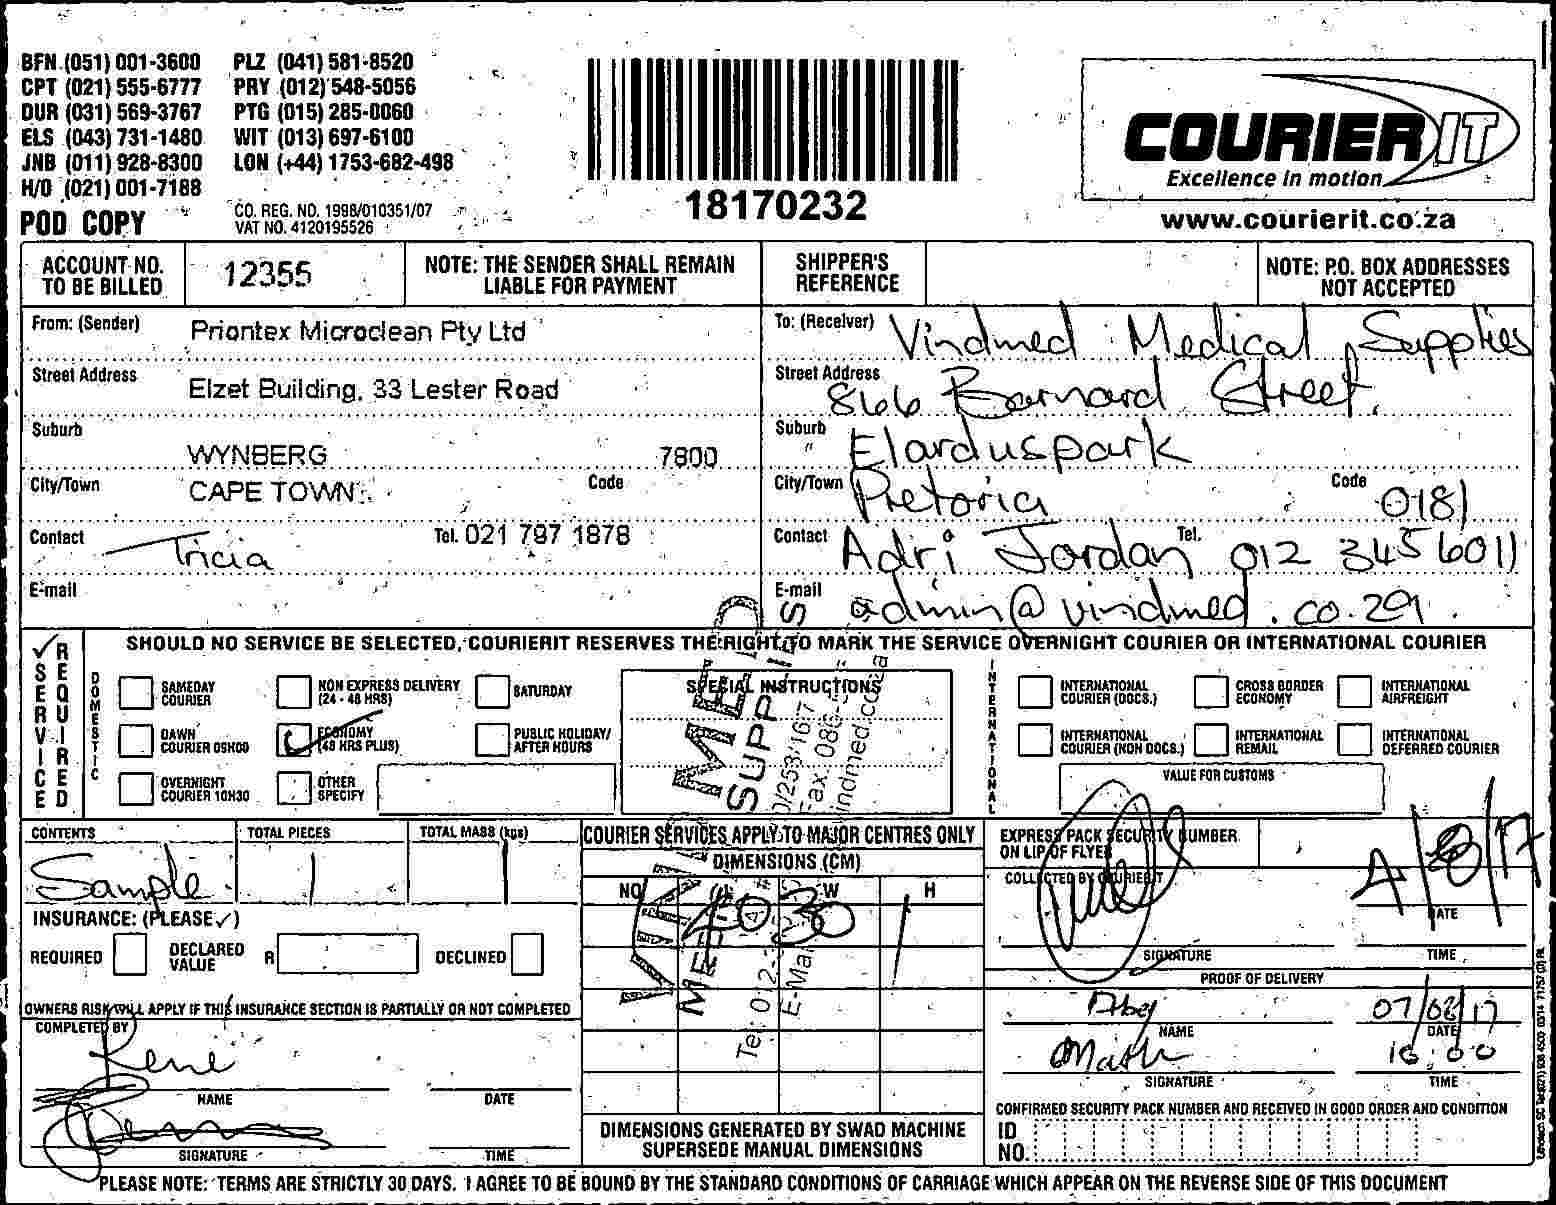 BFN (051) 001-3600 PLZ (041) 581-8520
CPT (021) 555-6777 PRY (012) 548-5056
DUR (031) 569-3767 PTG (015) 285-0060
ELS (043) 731-1480 WIT (013) 697-6100
JNB (011) 928-8300 LON (+44) 1753-682-498
H/O (021) 001-7188
POD COPY
CO. REG. NO. 1998/010351/07
VAT NO. 4120195526
18170232
COURIER IT
Excellence in motion
www.courierit.co.za
ACCOUNT NO. TO BE BILLED 12355
NOTE: THE SENDER SHALL REMAIN LIABLE FOR PAYMENT
SHIPPER'S REFERENCE
NOTE: P.O. BOX ADDRESSES NOT ACCEPTED
From: (Sender) Priontex Microclean Pty Ltd
Street Address Elzet Building, 33 Lester Road
Suburb WYNBERG 7800
City/Town CAPE TOWN Code
Contact Tricia Tel. 021 797 1878
E-mail
To: (Receiver) Vindmed Medical Supplies
Street Address 866 Barnard Street,
Suburb Elarduspark
City/Town Pretoria Code 0181
Contact Adri Jordan Tel. 012 345 6011
E-mail admin@vindmed.co.za
SHOULD NO SERVICE BE SELECTED, COURIERIT RESERVES THE RIGHT TO MARK THE SERVICE OVERNIGHT COURIER OR INTERNATIONAL COURIER
✓ SERVICE REQUIRED
DOMESTIC
SAMEDAY COURIER
NON EXPRESS DELIVERY (24 - 48 HRS)
SATURDAY
DAWN COURIER 09H00
ECONOMY (48 HRS PLUS)
PUBLIC HOLIDAY/ AFTER HOURS
OVERNIGHT COURIER 10H30
OTHER SPECIFY
SPECIAL INSTRUCTIONS
INTERNATIONAL
INTERNATIONAL COURIER (DOCS.)
CROSS BORDER ECONOMY
INTERNATIONAL AIRFREIGHT
INTERNATIONAL COURIER (NON DOCS.)
INTERNATIONAL REMAIL
INTERNATIONAL DEFERRED COURIER
VALUE FOR CUSTOMS
CONTENTS Sample
TOTAL PIECES 1
TOTAL MASS (kgs) 1
INSURANCE: (PLEASE ✓)
REQUIRED
DECLARED VALUE R
DECLINED
OWNERS RISK WILL APPLY IF THIS INSURANCE SECTION IS PARTIALLY OR NOT COMPLETED
COMPLETED BY
Rene
NAME DATE
SIGNATURE TIME
COURIER SERVICES APPLY TO MAJOR CENTRES ONLY
DIMENSIONS (CM)
NO W H
40 30 1
VINDMED
MEDICAL SUPPLIES
Tel: 012
Fax: 086
E-Mail
DIMENSIONS GENERATED BY SWAD MACHINE SUPERSEDE MANUAL DIMENSIONS
EXPRESS PACK SECURITY NUMBER ON LIP OF FLYER
COLLECTED BY COURIERIT
4/8/17
DATE
SIGNATURE TIME
PROOF OF DELIVERY
07/08/17
NAME DATE
16:00
SIGNATURE TIME
CONFIRMED SECURITY PACK NUMBER AND RECEIVED IN GOOD ORDER AND CONDITION
ID NO.
PLEASE NOTE: TERMS ARE STRICTLY 30 DAYS. I AGREE TO BE BOUND BY THE STANDARD CONDITIONS OF CARRIAGE WHICH APPEAR ON THE REVERSE SIDE OF THIS DOCUMENT